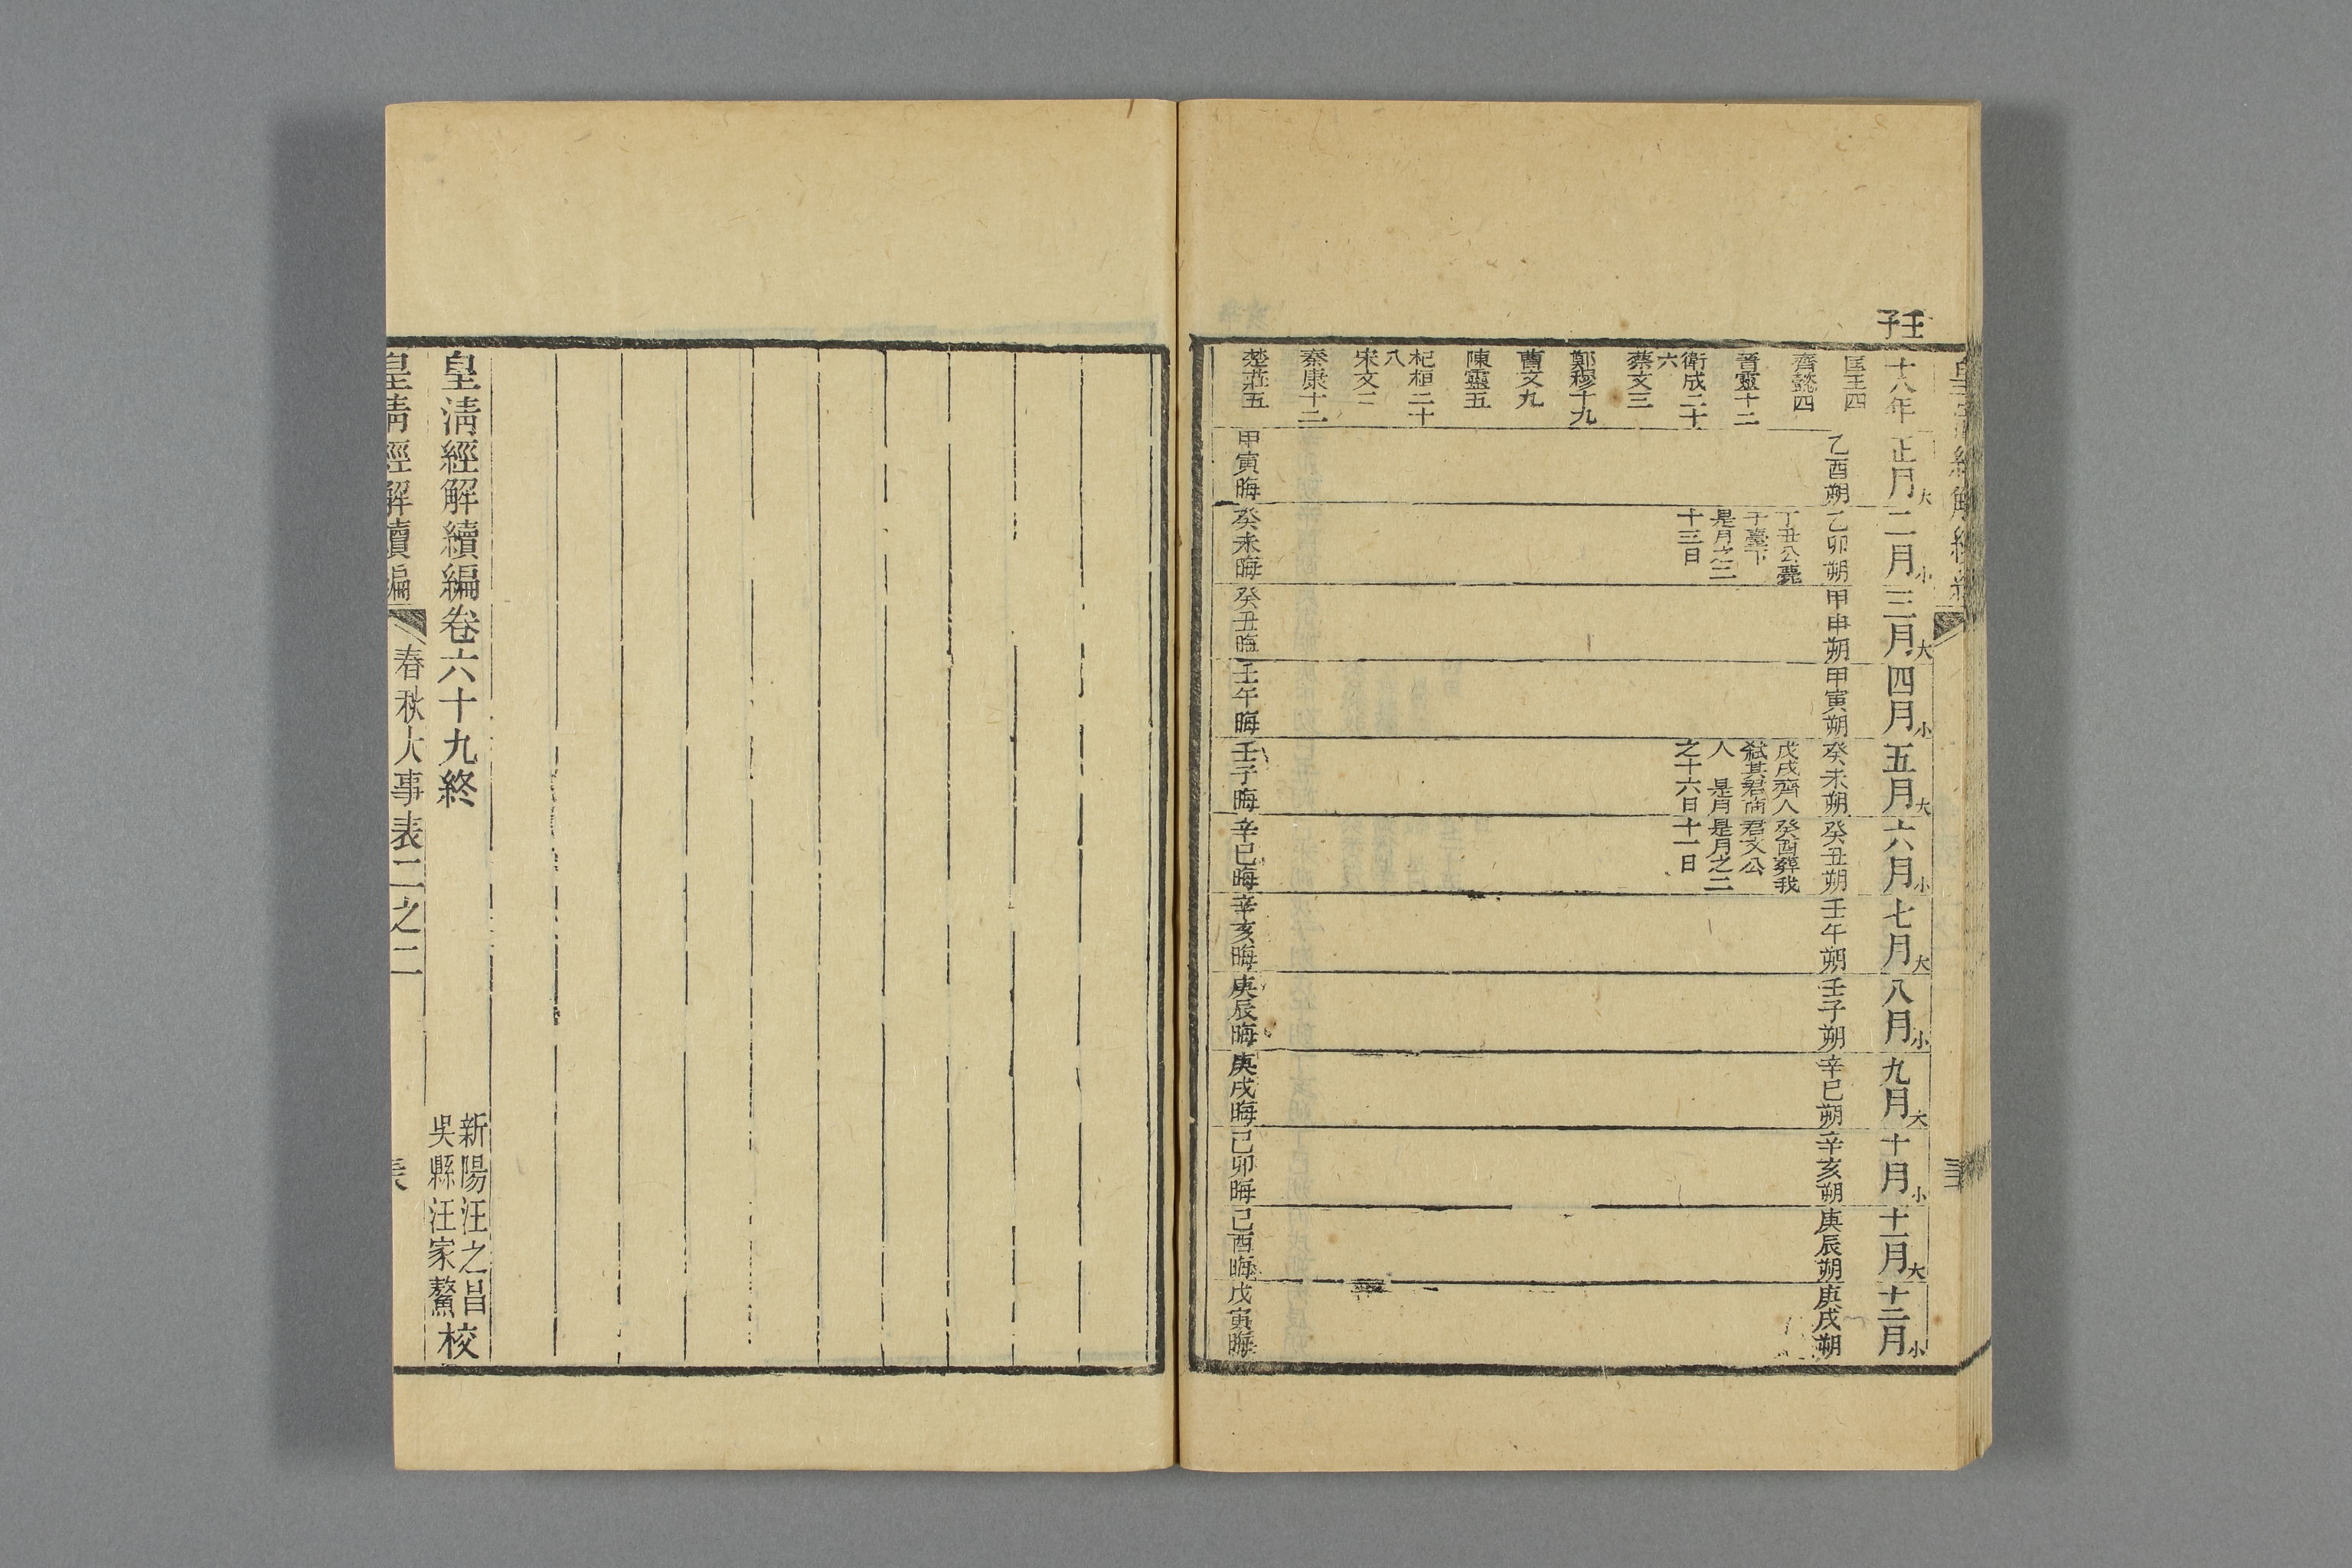 壬子
十八年
匡王四
齊懿四
晉靈十二
衛成二十六
蔡文三
鄭穆十九
曹文九
陳靈五
杞桓二十八
宋文二
秦康十二
楚莊五
正月大
乙酉朔
甲寅晦
二月小
乙卯朔
丁丑公薨
于臺下
是月之二
十三日
癸未晦
三月大
甲申朔
癸丑晦
四月小
甲寅朔
壬午晦
五月大
癸未朔
戊戌齊人
弑其君商
人 是月
之十六日
壬子晦
六月小
癸丑朔
癸酉葬我
君文公
是月之二
十一日
辛巳晦
七月大
壬午朔
辛亥晦
八月小
壬子朔
庚辰晦
九月大
辛巳朔
庚戌晦
十月小
辛亥朔
己卯晦
十一月大
庚辰朔
己酉晦
十二月小
庚戌朔
戊寅晦
皇清經解續編卷六十九終
新陽汪之昌
吳縣汪家鰲
校
皇清經解續編
春秋大事表二之二